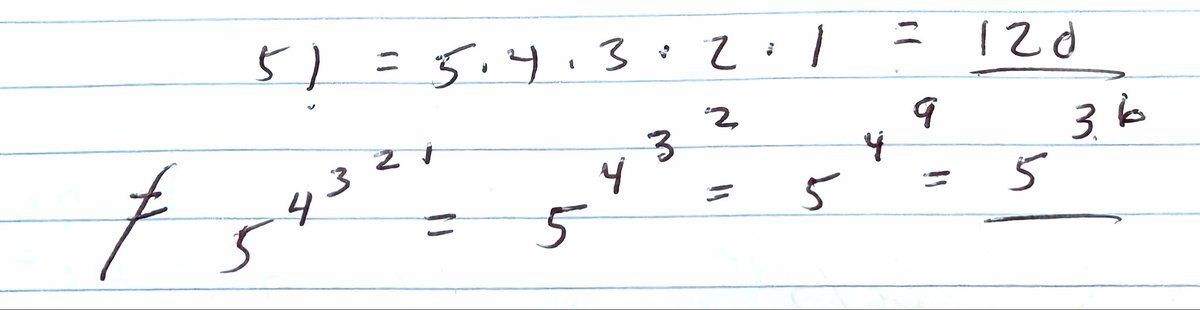 5! = 5·4·3·2·1 = 120
≠ 5^4^3^2^1 = 5^4^3^2 = 5^4^9 = 5^3.6